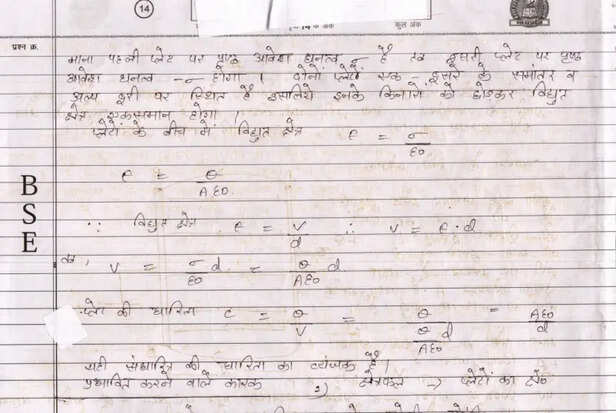 14
कुल अंक
प्रश्न क्र.
माना पहली प्लेट पर पृष्ठ आवेश घनत्व σ है तब दूसरी प्लेट पर पृष्ठ
आवेश घनत्व -σ होगा । दोनों प्लेटें एक-दूसरे के समांतर व
अल्प दूरी पर स्थित है इसलिये इनके किनारों को छोड़कर विद्युत
क्षेत्र एकसमान होगा ।
प्लेटों के बीच में विद्युत क्षेत्र E = σ/ε0
E = Q/Aε0
∵ विद्युत क्षेत्र E = V/d ∴ V = E·d
तब, V = σ/ε0 d = Q/Aε0 d
प्लेट की धारिता C = Q/V = Q/(Q/Aε0 d) = Aε0/d
यही संधारित्र की धारिता का व्यंजक है ।
प्रभावित करने वाले कारक 1) क्षेत्रफल → प्लेटों का
BSE